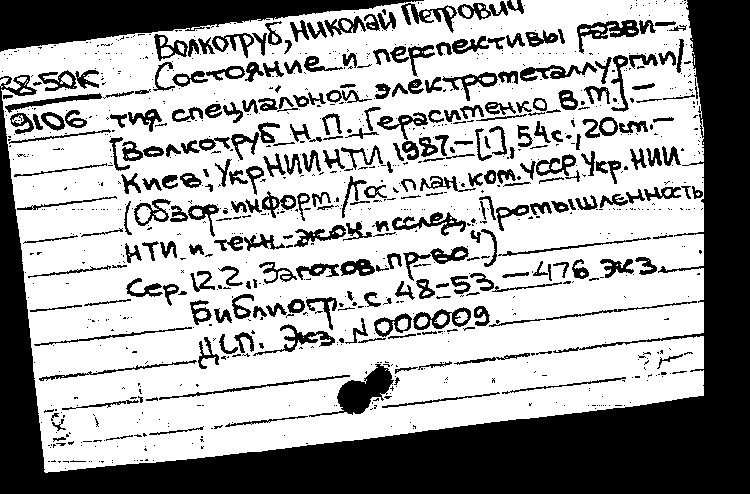 Волкотруб, Николай Петрович
88-50К Состояние и перспективы разви-
9106 тия специальной электрометаллургии/
[Волкотруб Н.П., Герасименко В.Т.].—
Киев; УкрНИИНТИ, 1987.—[1], 54с.; 20см.—
(Обзор. информ./Гос. план. ком. УССР, Укр. НИИ
НТИ и техн.-экон. исслед. Промышленность
Сер. 12.2 „Заготов. пр-во").
Библиогр.: с. 48-53.—476 экз.
ДСП. Экз. N000009.